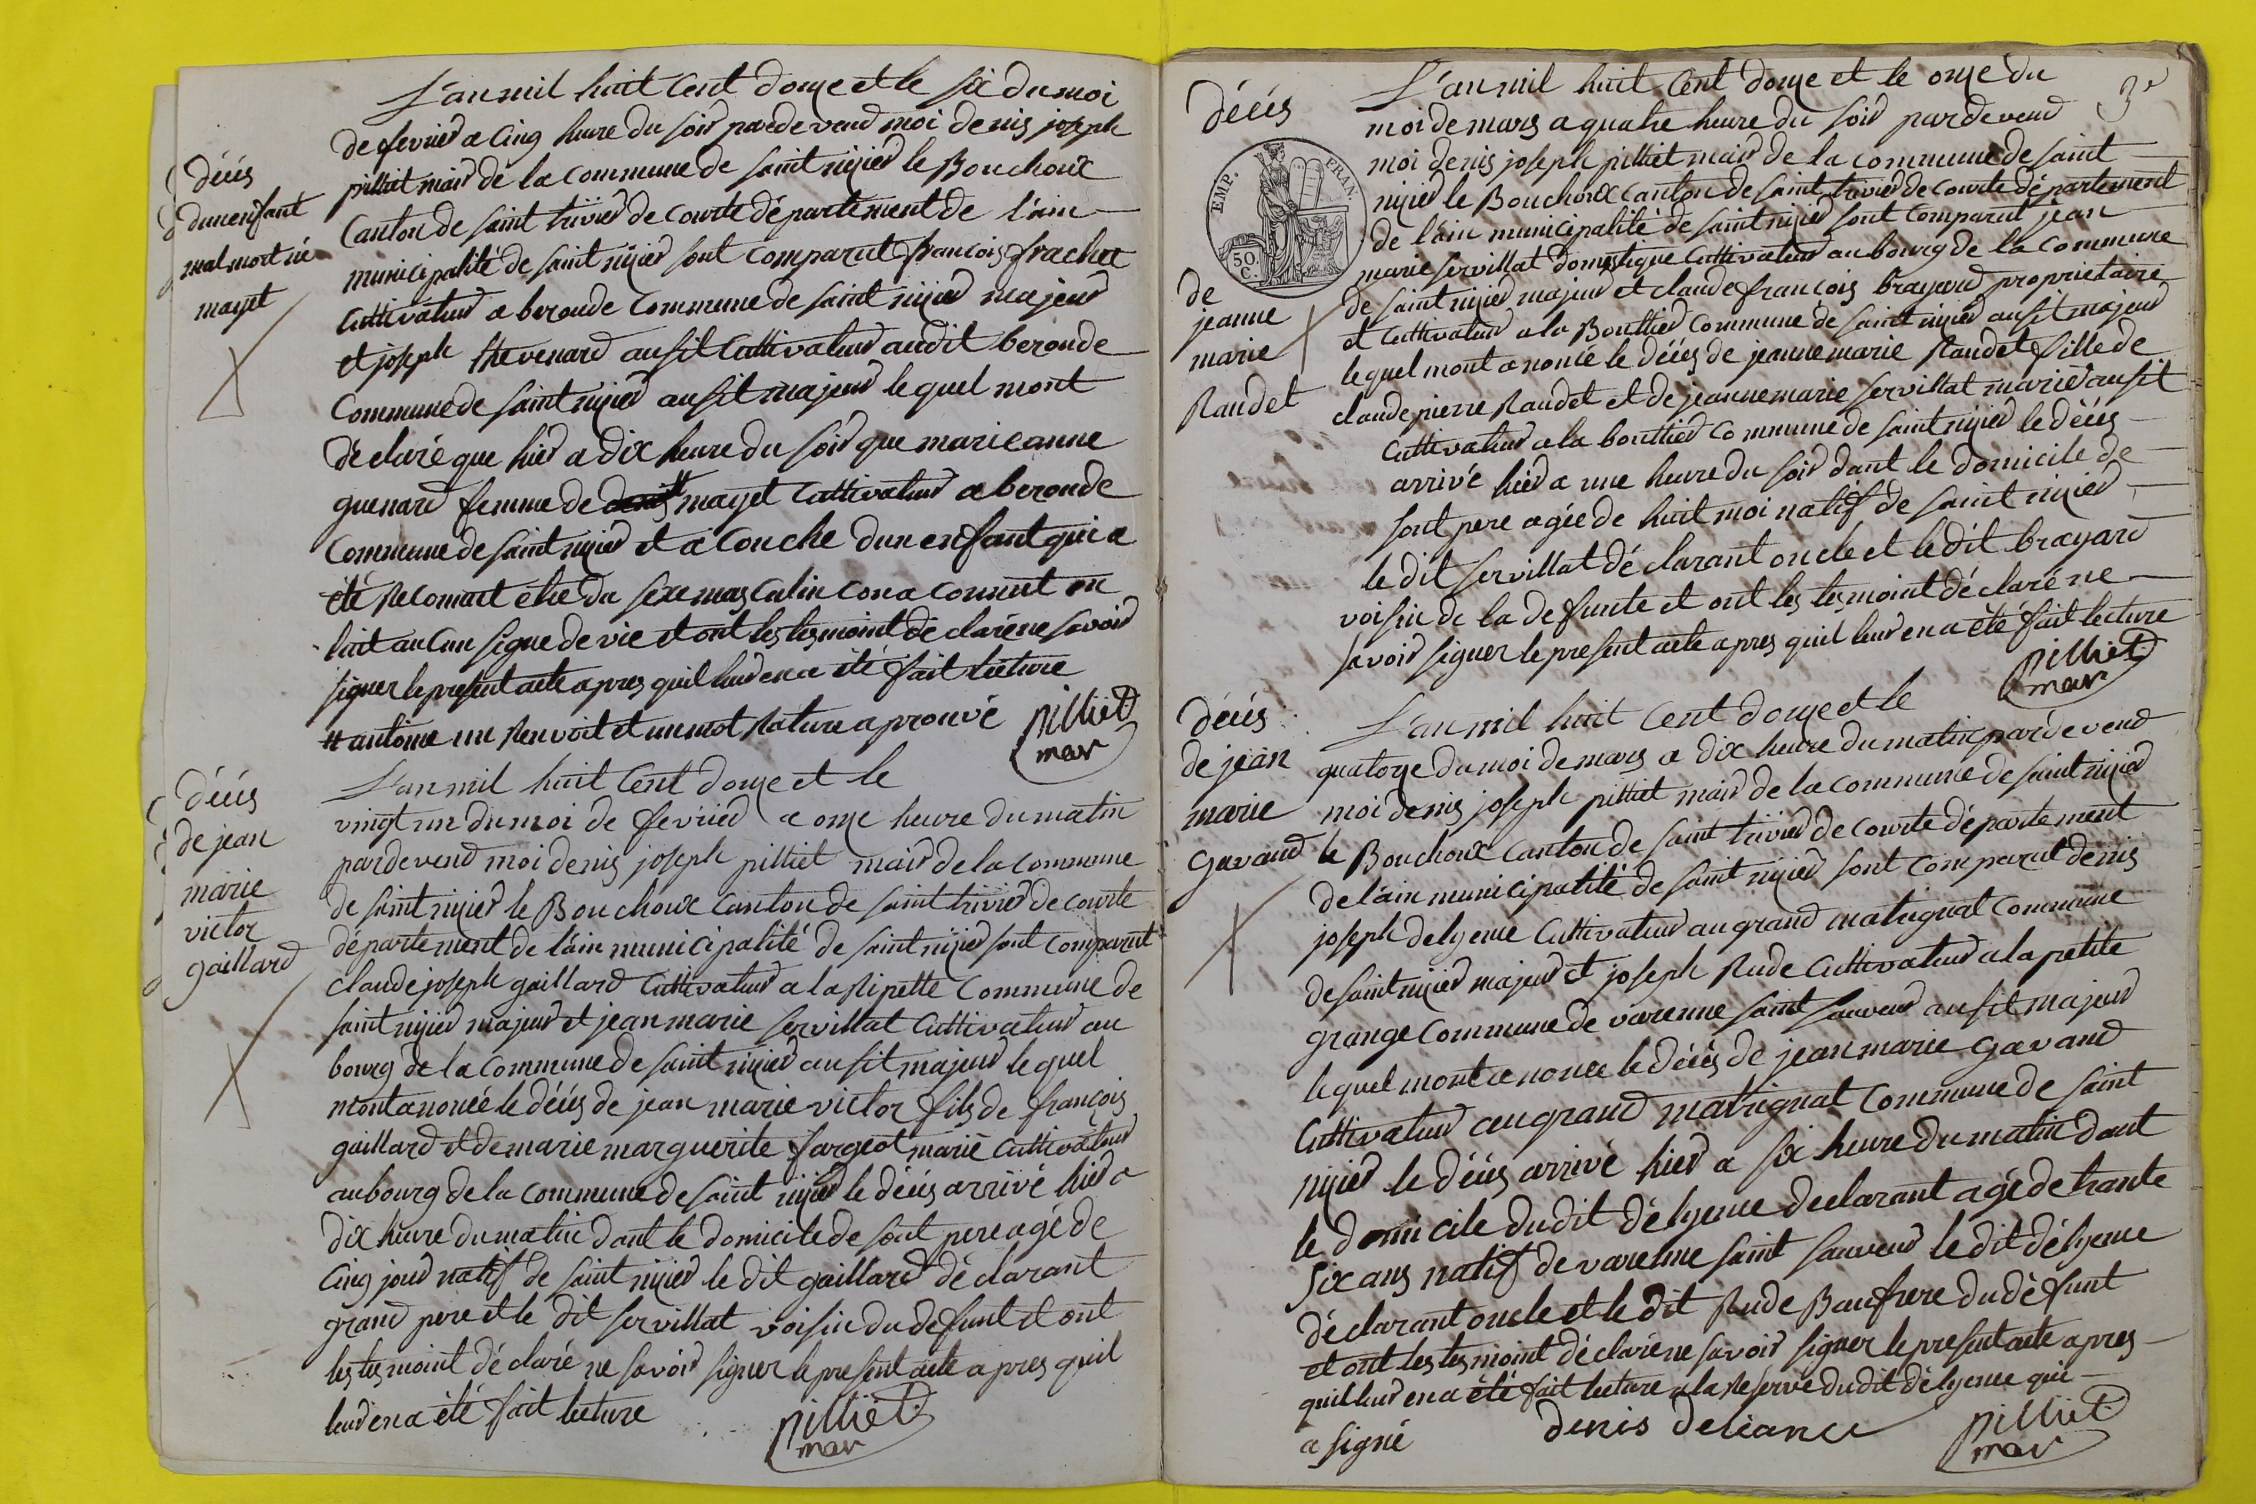 L'an mil huit Cent douze et le six du moi
de fevrier a Cinq heure du soir pardevend moi denis joseph
pilliet mair de la Commune de saint nizier le Bouchoux
Canton de saint trivier de Courte département de l'ain
municipalité de saint nizier sont Comparut francois frachet
Cultivateur a beronde Commune de saint nizier majeur
et joseph thevenard ausit Cultivateur audit beronde
Commune de saint nizier ausit majeur lequel mont
déclaré que hier a dix heure du soir que marie anne
guenard femme de # mayet Cultivateur a beronde
Commune de saint nizier et a Couche dun enfant qui a
été Reconnut etre du sexe masculin con a connut on
lait aucun signe de vie et ont les tesmoint déclaré ne savoir
signer le present acte apres quil leur en a été fait lecture
# antoine un Renvoit et un mot Rature aprouvé
pilliet
mair
décés
dun enfant
mal mort né
mayet
L'an mil huit Cent douze et le
vingt un du moi de fevrier a onze heure du matin
pardevend moi denis joseph pilliet mair de la Commune
de saint nizier le Bouchoux Canton de saint trivier de Courte
département de l'ain municipalité de saint nizier sont Comparut
claude joseph gaillard Cultivateur a la Ripette Commune de
saint nizier majeur et jean marie servillat Cultivateur au
bourg de la Commune de saint nizier ausit majeur lequel
mont anoncé le décés de jean marie victor fils de francois
gaillard et de marie marguerite fargeot marié Cultivateur
au bourg de la Commune de saint nizier le décés arrivé hier a
dix heure du matin dant le domicile de sont pere agé de
Cinq jour natif de saint nizier le dit gaillard déclarant
grand pere et le dit servillat voisin du defunt et ont
les tesmoint déclaré ne savoir signer le present acte apres quil
leur en a été fait lecture
pilliet
mair
décés
de jean
marie
victor
gaillard
3e
L'an mil huit Cent douze et le onze du
moi de mars a quatre heure du soir pardevend
moi denis joseph pilliet mair de la Commune de saint
nizier le Bouchoux Canton de saint trivier de Courte département
de l'ain municipalité de saint nizier sont Comparut jean
marie servillat domestique Cultivateur au bourg de la Commune
de saint nizier majeur et claude francois brayard proprietaire
et Cultivateur a la Bouttier Commune de saint nizier ausit majeur
lequel mont anoncé le décés de jeanne marie Raudet fille de
claude pierre Raudet et de jeanne marie servillat marié ausit
Cultivateur a la bouttier Commune de saint nizier le décés
arrivé hier a une heure du soir dant le domicile de
sont pere agée de huit moi natif de saint nizier
le dit servillat déclarant oncle et le dit brayard
voisin de la defunte et ont les tesmoint déclaré ne
savoir signer le present acte apres quil leur en a été fait lecture
pilliet
mair
décés
EMP. FRAN.
50.
C.
de
jeanne
marie
Raudet
L'an mil huit Cent douze et le
quatorze du moi de mars a dix heure du matin pardevend
moi denis joseph pilliet mair de la Commune de saint nizier
le Bouchoux Canton de saint trivier de Courte département
de l'ain municipalité de saint nizier sont Comparut denis
joseph delyence Cultivateur au grand matrignat Commune
de saint nizier majeur et joseph Rude Cultivateur a la petite
grange Commune de varenne saint sauveur ausit majeur
lequel mont anoncé le décés de jean marie gavand
Cultivateur au grand matrignat Commune de saint
nizier le décés arrivé hier a six heure du matin dant
le domicile du dit délyence declarant agé de trante
six ans natif de varenne saint sauveur le dit délyence
déclarant oncle et le dit Rude Baufrere du défunt
et ont les tesmoint déclaré ne savoir signer le present acte apres
quil leur en a été fait lecture a la Réserve du dit délyence qui
a signé
denis deliance
pilliet
mair
décés
de jean
marie
gavand